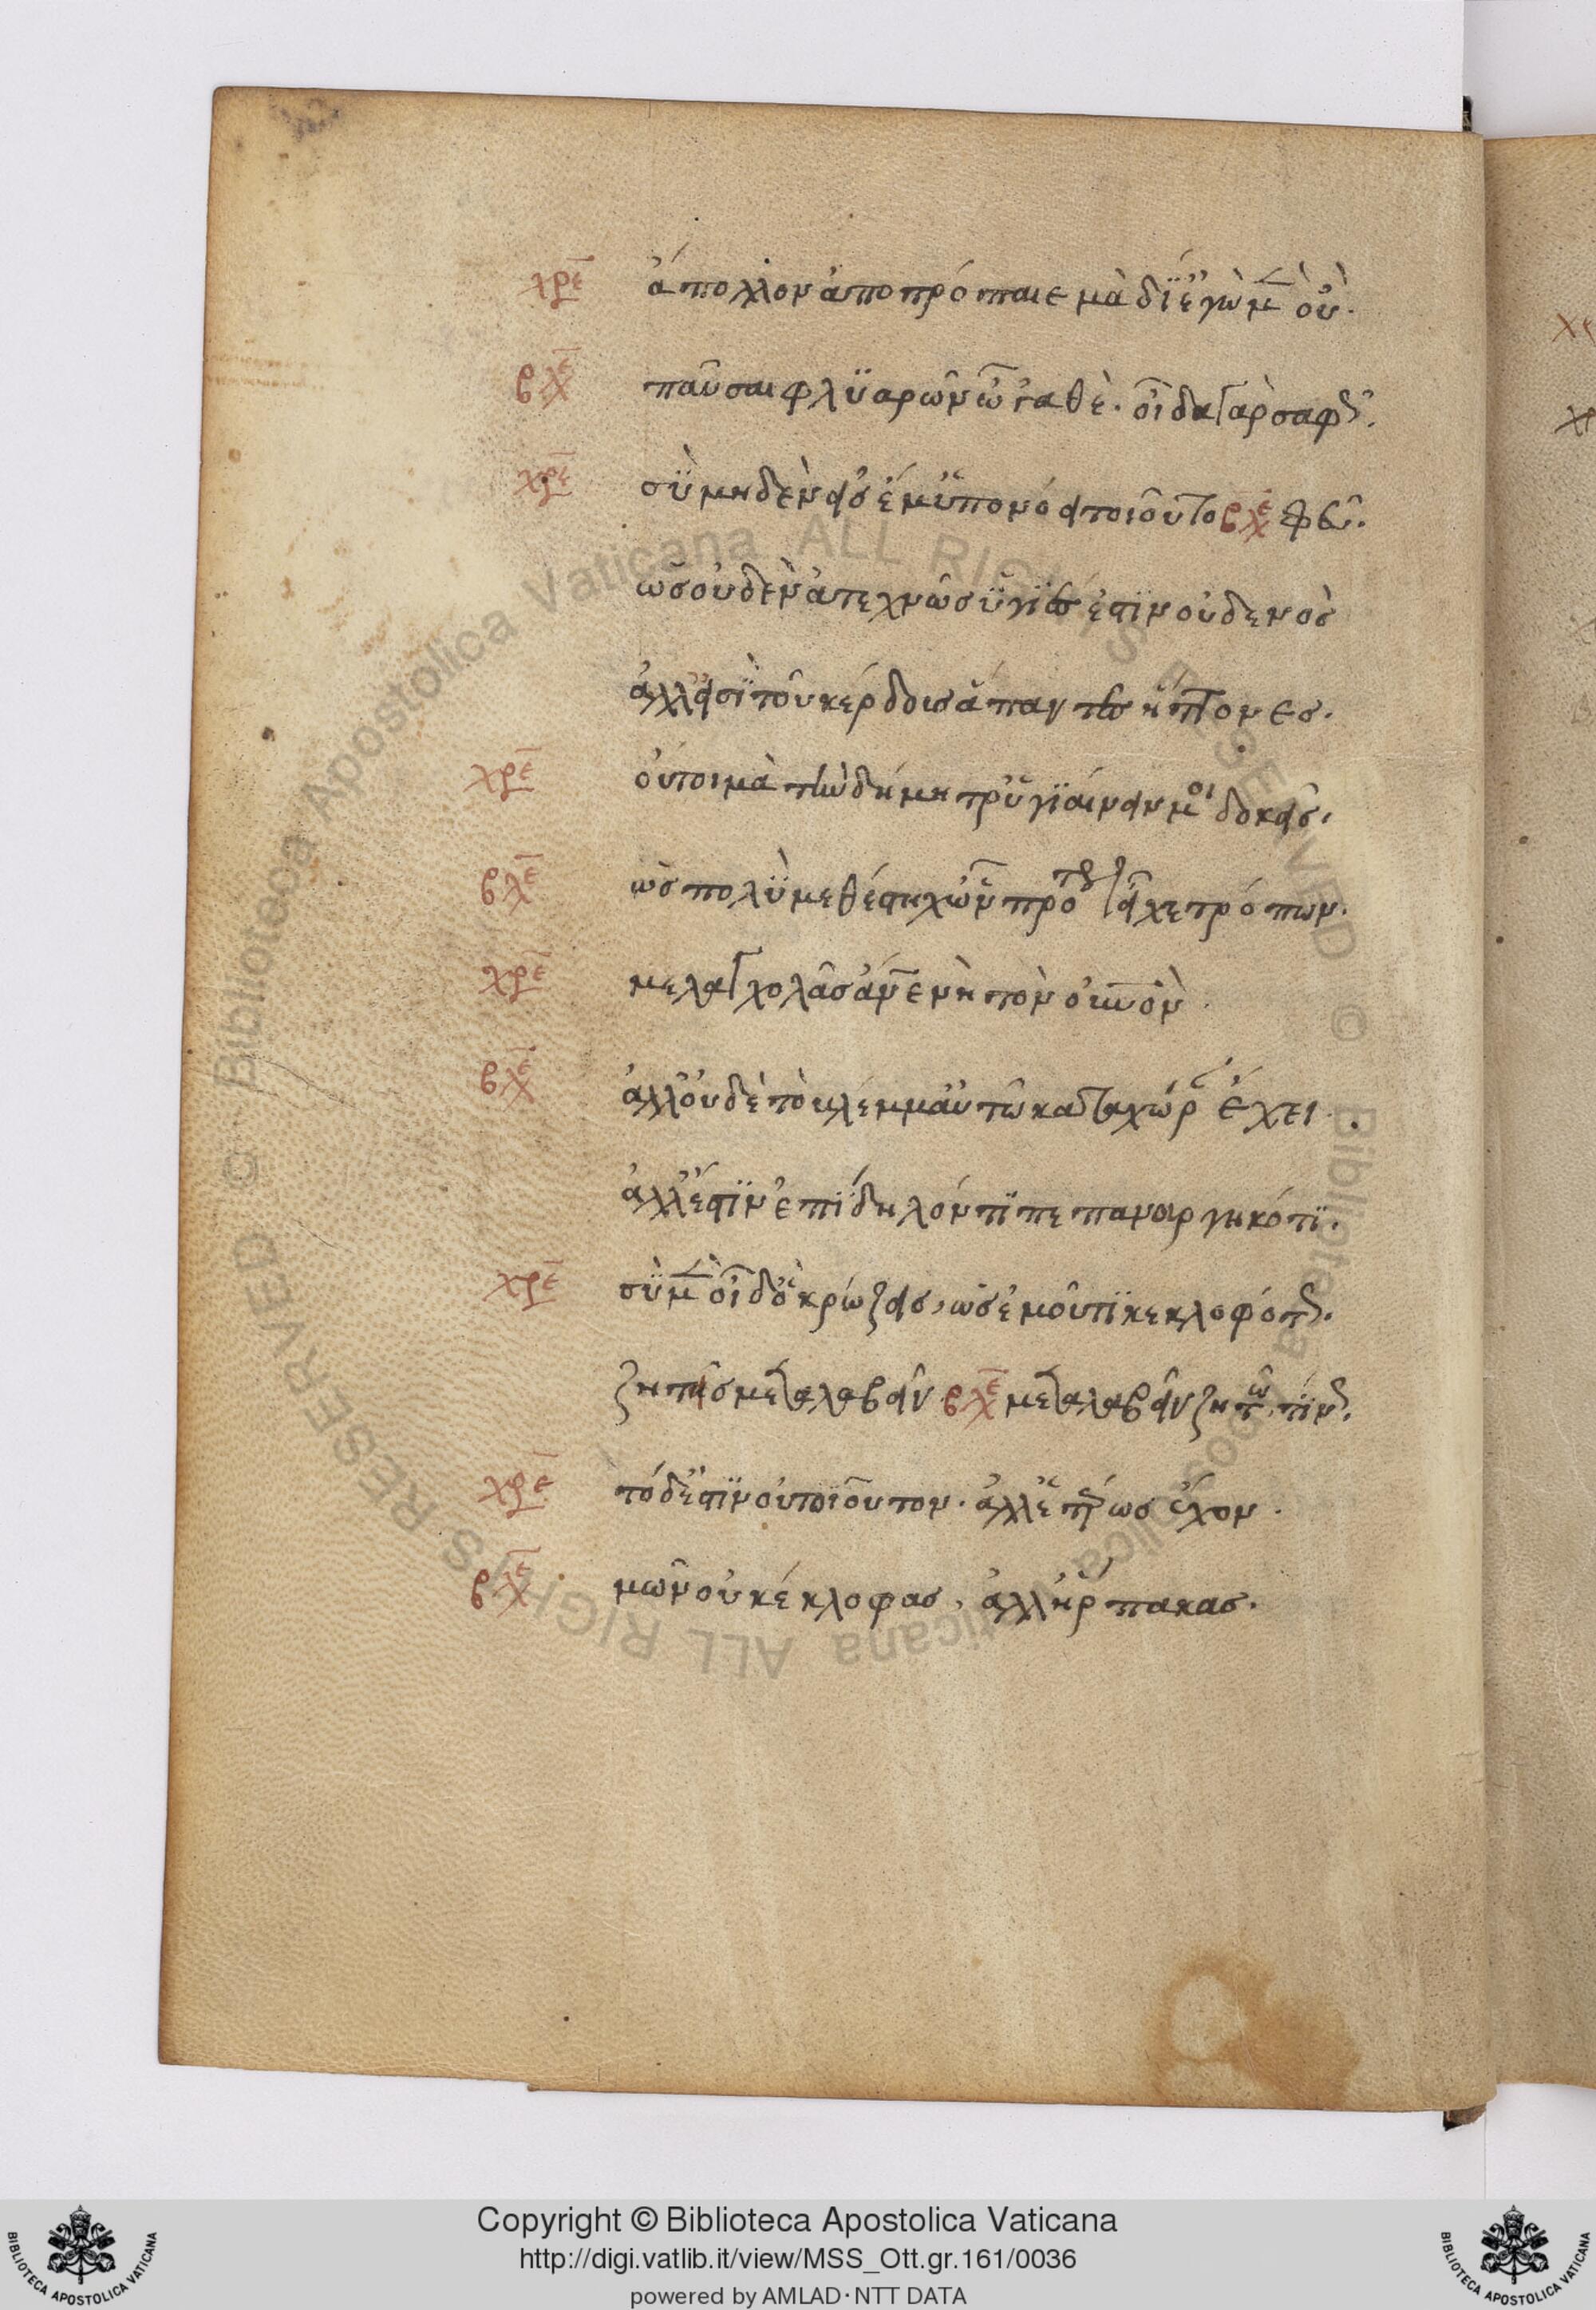 χρε ἄπολλον ἀποτρόπαιε μὰ δί ἐγὼ μ(ὲν) οὔ.
βλε παῦσαι φλυαρῶν ὦ γαθὲ. οἶδα γὰρ σαφῶς.
χρε σὺ μηδὲν εἰς ἔμ ὑπονόει τοιοῦτο βλε φεῦ.
ὡς οὐδὲν ἀτεχνῶς ὑγιές ἐστιν οὐδενὸς
ἀλλ εἰσὶ τοῦ κέρδους ἅπαντες ἥττονες.
χρε οὔτοι μὰ τὴν δήμητρ ὑγιαίνειν μοι δοκεῖς.
βλε ὡς πολὺ μεθέστηχ ὧν πρότερον εἶχε τρόπων.
χρε μελαγχολᾷς ἄνθρωπε νὴ τὸν οὐρανὸν.
βλε ἀλλ οὐδὲ τὸ βλέμμ αὐτῶ κατὰ χώραν ἔχει.
ἀλλ ἔστιν ἐπίδηλόν τι πεπανουργηκότι.
χρε σὺ μ(ὲν) οἶδ ὃ κρώζεις, ὡς ἐμοῦ τι κεκλοφότος.
ζητεῖς μεταλαβεῖν βλε μεταλαβεῖν ζητῶ, τίνος.
χρε τὸ δ ἔστιν οὐ τοιοῦτον. ἀλλ ἑτέρως ἔχον.
βλε μῶν οὐ κέκλοφας, ἀλλ ἥρπακας.
Copyright © Biblioteca Apostolica Vaticana
http://digi.vatlib.it/view/MSS_Ott.gr.161/0036
powered by AMLAD·NTT DATA